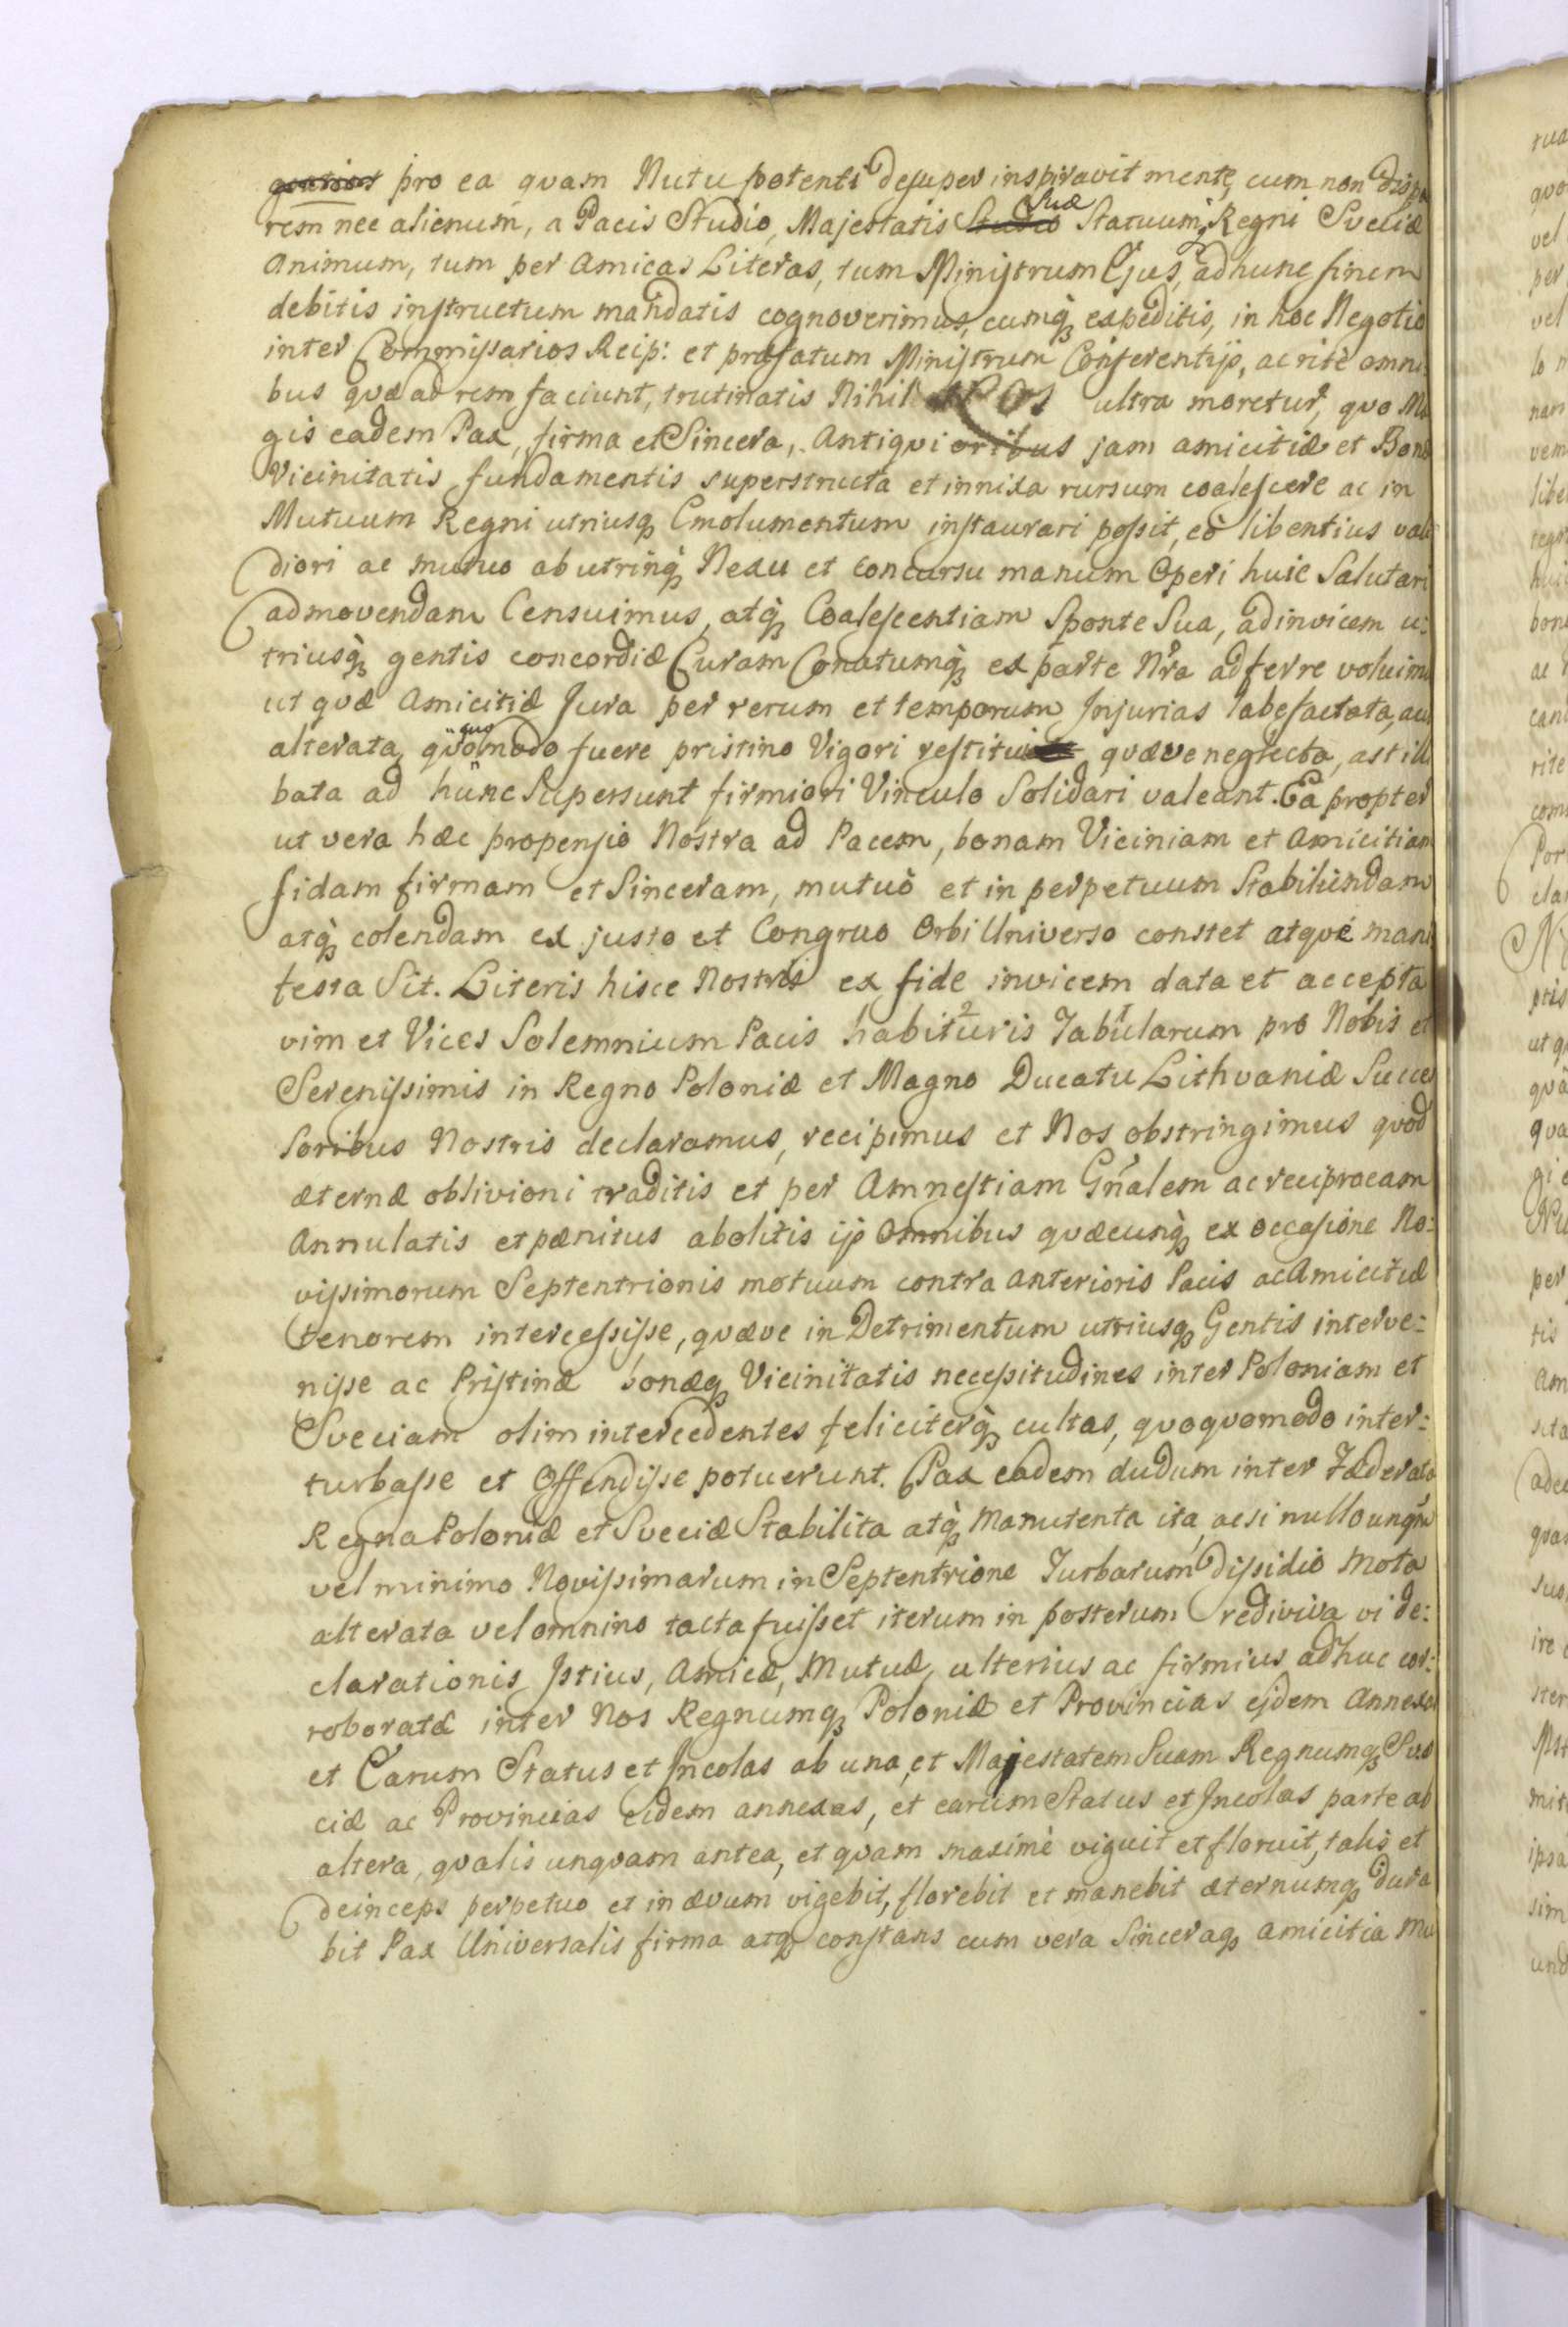 pro ea quam Nutu potenti desuper inspiravit mente, cum non dispa
rem nec alienum, a Pacis Studio, Majestatis Studio Suæ Statuumq̀ꝫ Regni Sveciæ
Animum, tum per Amicas Literas, tum Ministrum Ejus, ad hunc finem
debitis instructum mandatis cognoverimus, cumq̀ꝫ expeditis, in hoc Negotio
inter Commissarios Reip: et præfatum Ministrum Conferentijs, ac ritè omni:
bus quæ ad rem faciunt, trutinatis Nihil Nos ultra moretur, quo Ma
gis eadem Pax, firma et Sincera, Antiquioribus jam amicitiæ et Bonæ
Vicinitatis fundamentis superstructa et innixa rursum coalescere ac in
Mutuum Regni utriusqꝫ Emolumentum instaurari possit, eò libentius vali
diori ac mutuo ab utrinq̀ꝫ Nexu et concursu manum Operi huic Salutari
admovendam Censuimus, atq̀ꝫ Coalescentiam Sponte Sua, ad invicem u:
triusq̀ꝫ gentis concordiæ Curam Conatumq̀ꝫ ex parte Nr̃a adferre voluimus
ut quæ Amicitiæ Jura per rerum et temporum Injurias labefactata, aut
alterata, quoquomodo fuere pristino Vigori restitui quæve neglecta, ast illi
bata ad hunc Supersunt firmiori Vinculo Solidari valeant. Ea propter
ut vera hæc propensio Nostra ad Pacem, bonam Viciniam et Amicitiam
fidam firmam et Sinceram, mutuò et in perpetuum Stabiliendam
atq̀ꝫ colendam ex justo et Congruo Orbi Universo constet atque mani
festa Sit. Literis hisce Nostris ex fide invicem data et accepta
vim et Vices Solemnium Pacis habituris 2 Tabularum 1 pro Nobis et
Serenissimis in Regno Poloniæ et Magno Ducatu Lithvaniæ Succes
soribus Nostris declaramus, recipimus et Nos obstringimus quod
æternæ oblivioni traditis et per Amnestiam Gñalem ac reciprocam
Annulatis et pænitus abolitis ijs Omnibus quæcunq̀ꝫ ex occasione No:
vissimorum Septentrionis motuum contra anterioris Pacis ac Amicitiæ
tenorem intercessisse, quæve in Detrimentum utriusqꝫ Gentis interve:
nisse ac Pristinæ bonæqꝫ Vicinitatis necessitudines inter Poloniam et
Sveciam olim intercedentes feliciterq̀ꝫ cultas, quoquomodo inter:
turbasse et Offendisse potuerunt. Pax eadem dudum inter Fæderata
Regna Poloniæ et Sveciæ Stabilita atq̀ꝫ Manutenta ita, ac si nullo unqm̃
vel minimo Novissimarum in Septentrione Turbarum Dissidio Mota
alterata vel omnino tacta fuisset iterum in posterum rediviva vi de:
clarationis Istius, Amicæ, Mutuæ, ulterius ac firmius adhuc cor:
roboratæ inter Nos Regnumqꝫ Poloniæ et Provincias ejdem Annexas
et Earum Status et Incolas ab una, et Majestatem Suam Regnumqꝫ Sve
ciæ ac Provincias eidem annexas, et earum Status et Incolas parte ab
altera, qualis unquam antea, et quam maximè viguit et floruit, talis et
deinceps perpetuo et in ævum vigebit, florebit et manebit æternumqꝫ dura
bit Pax Universalis firma atqꝫ constans cum vera Sinceraqꝫ amicitia Mu